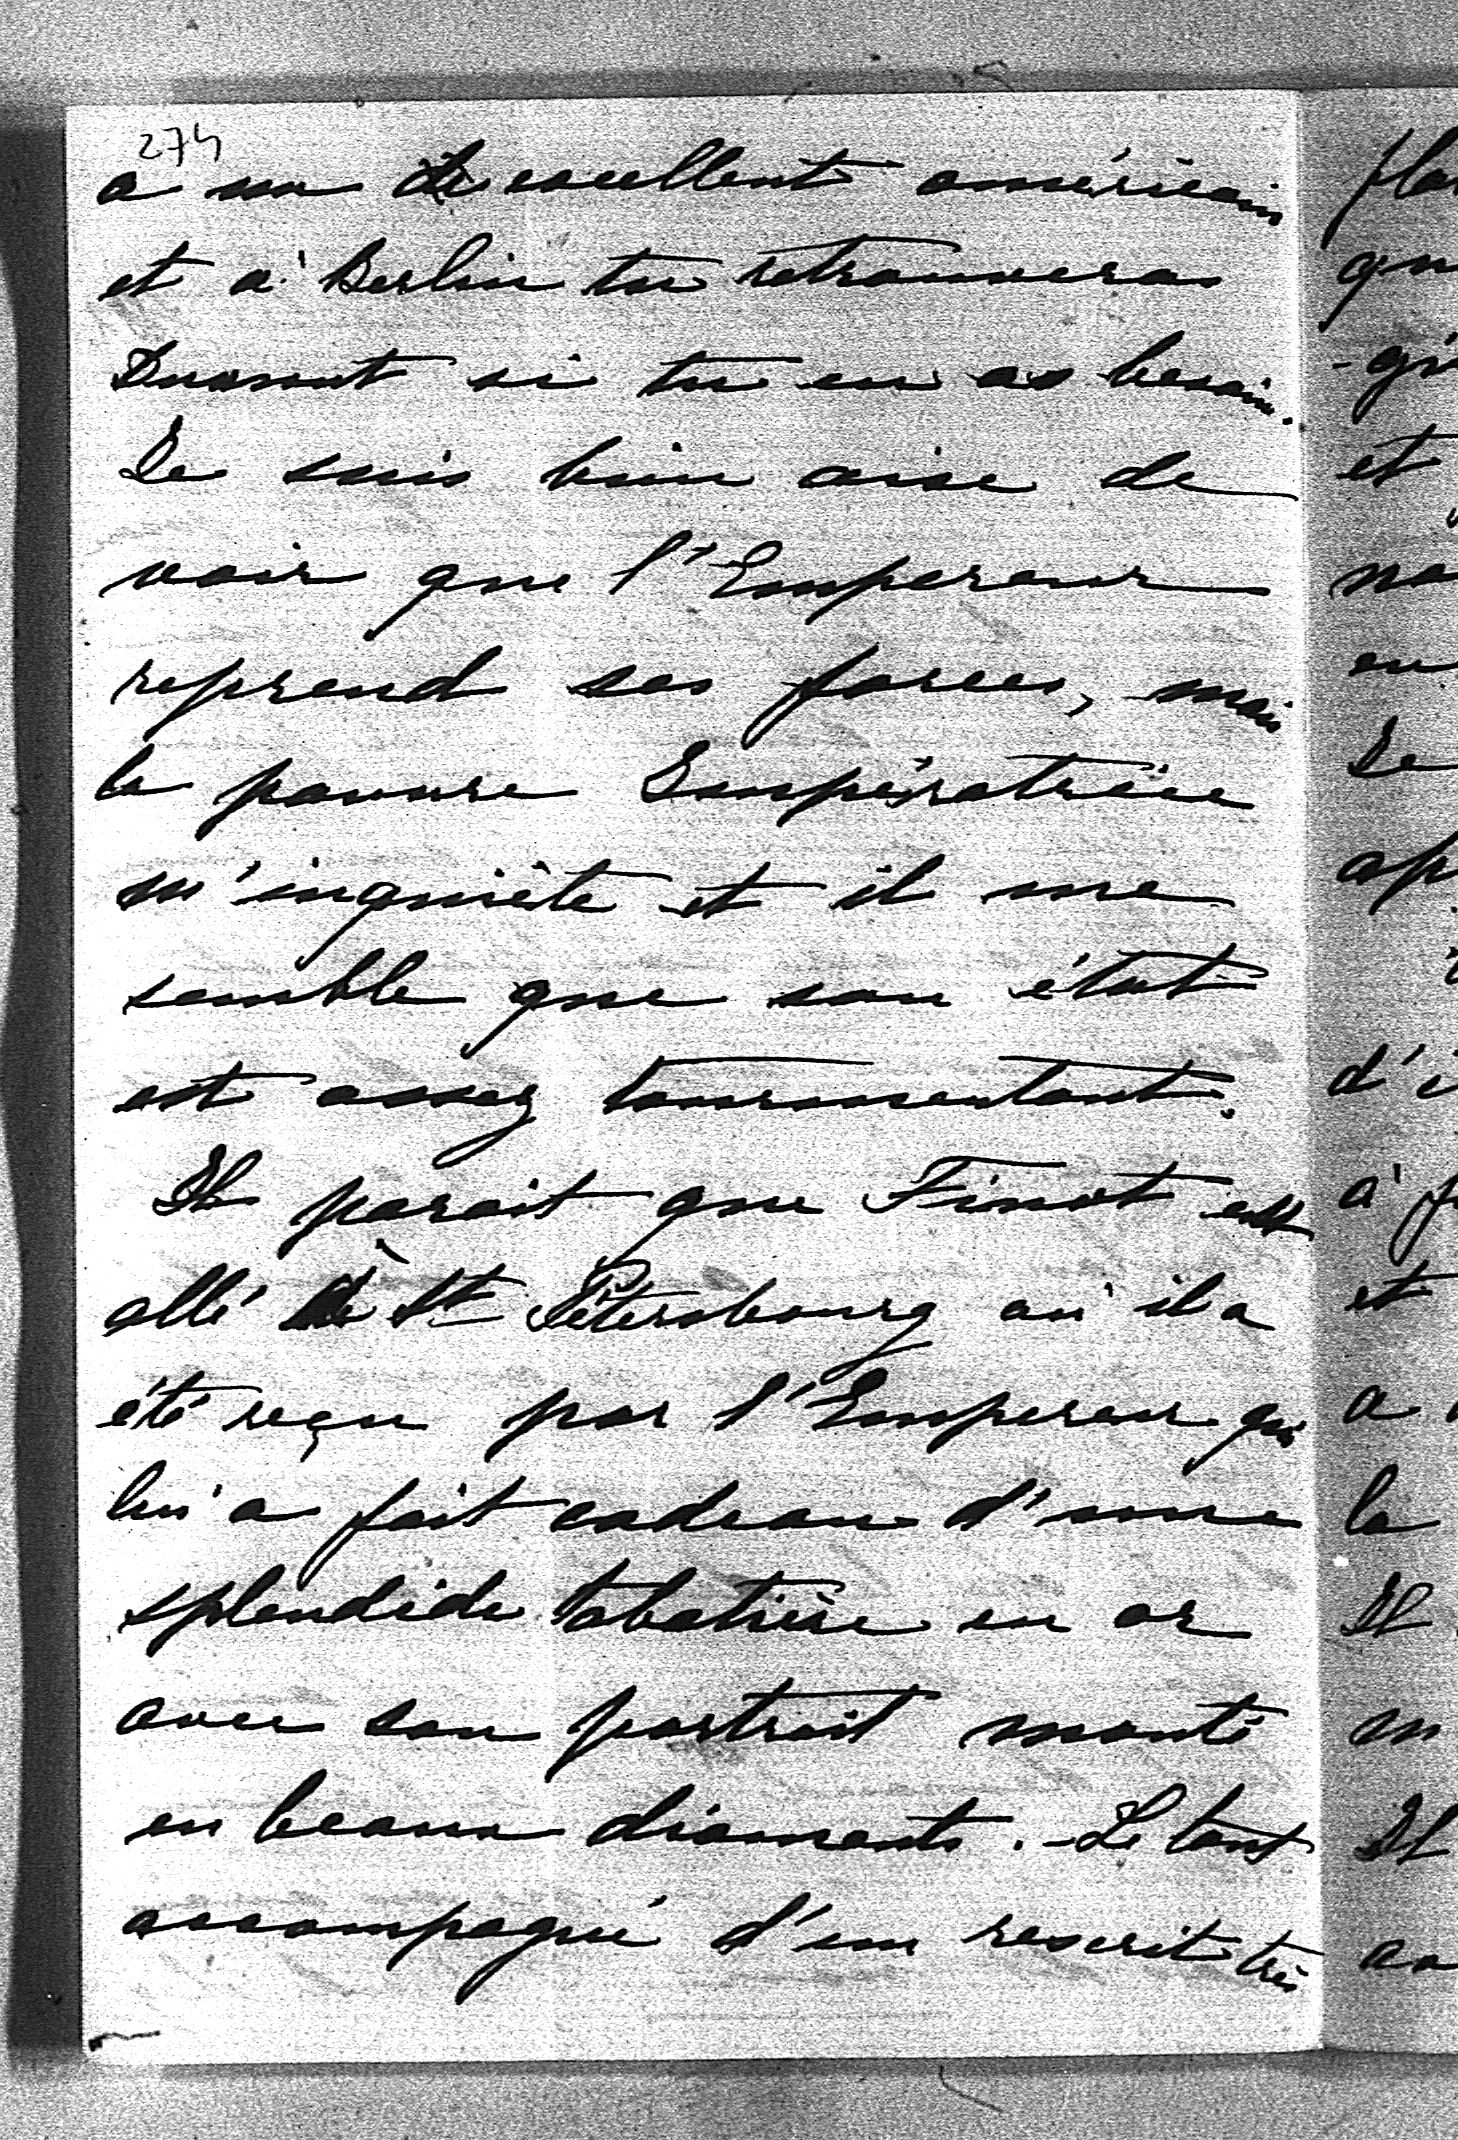 274
a un excellent américain
et à Berlin tu retrouveras
si tu en as besoin.
Je suis bien aise de
voir que l'Empereur
reprend ses forces, mais
la pauvre Impératrice
m'inquiète et il me
semble que son état
est assez tourmentant.
Il parait que Finot est
allé à St Pétersbourg où il a
été reçu par l'Empereur qui
lui a fait cadeau d'une
splendide tabatière en or
avec son portrait monté
en beaux diamants. - Le tout
accompagné d'un rescrit très